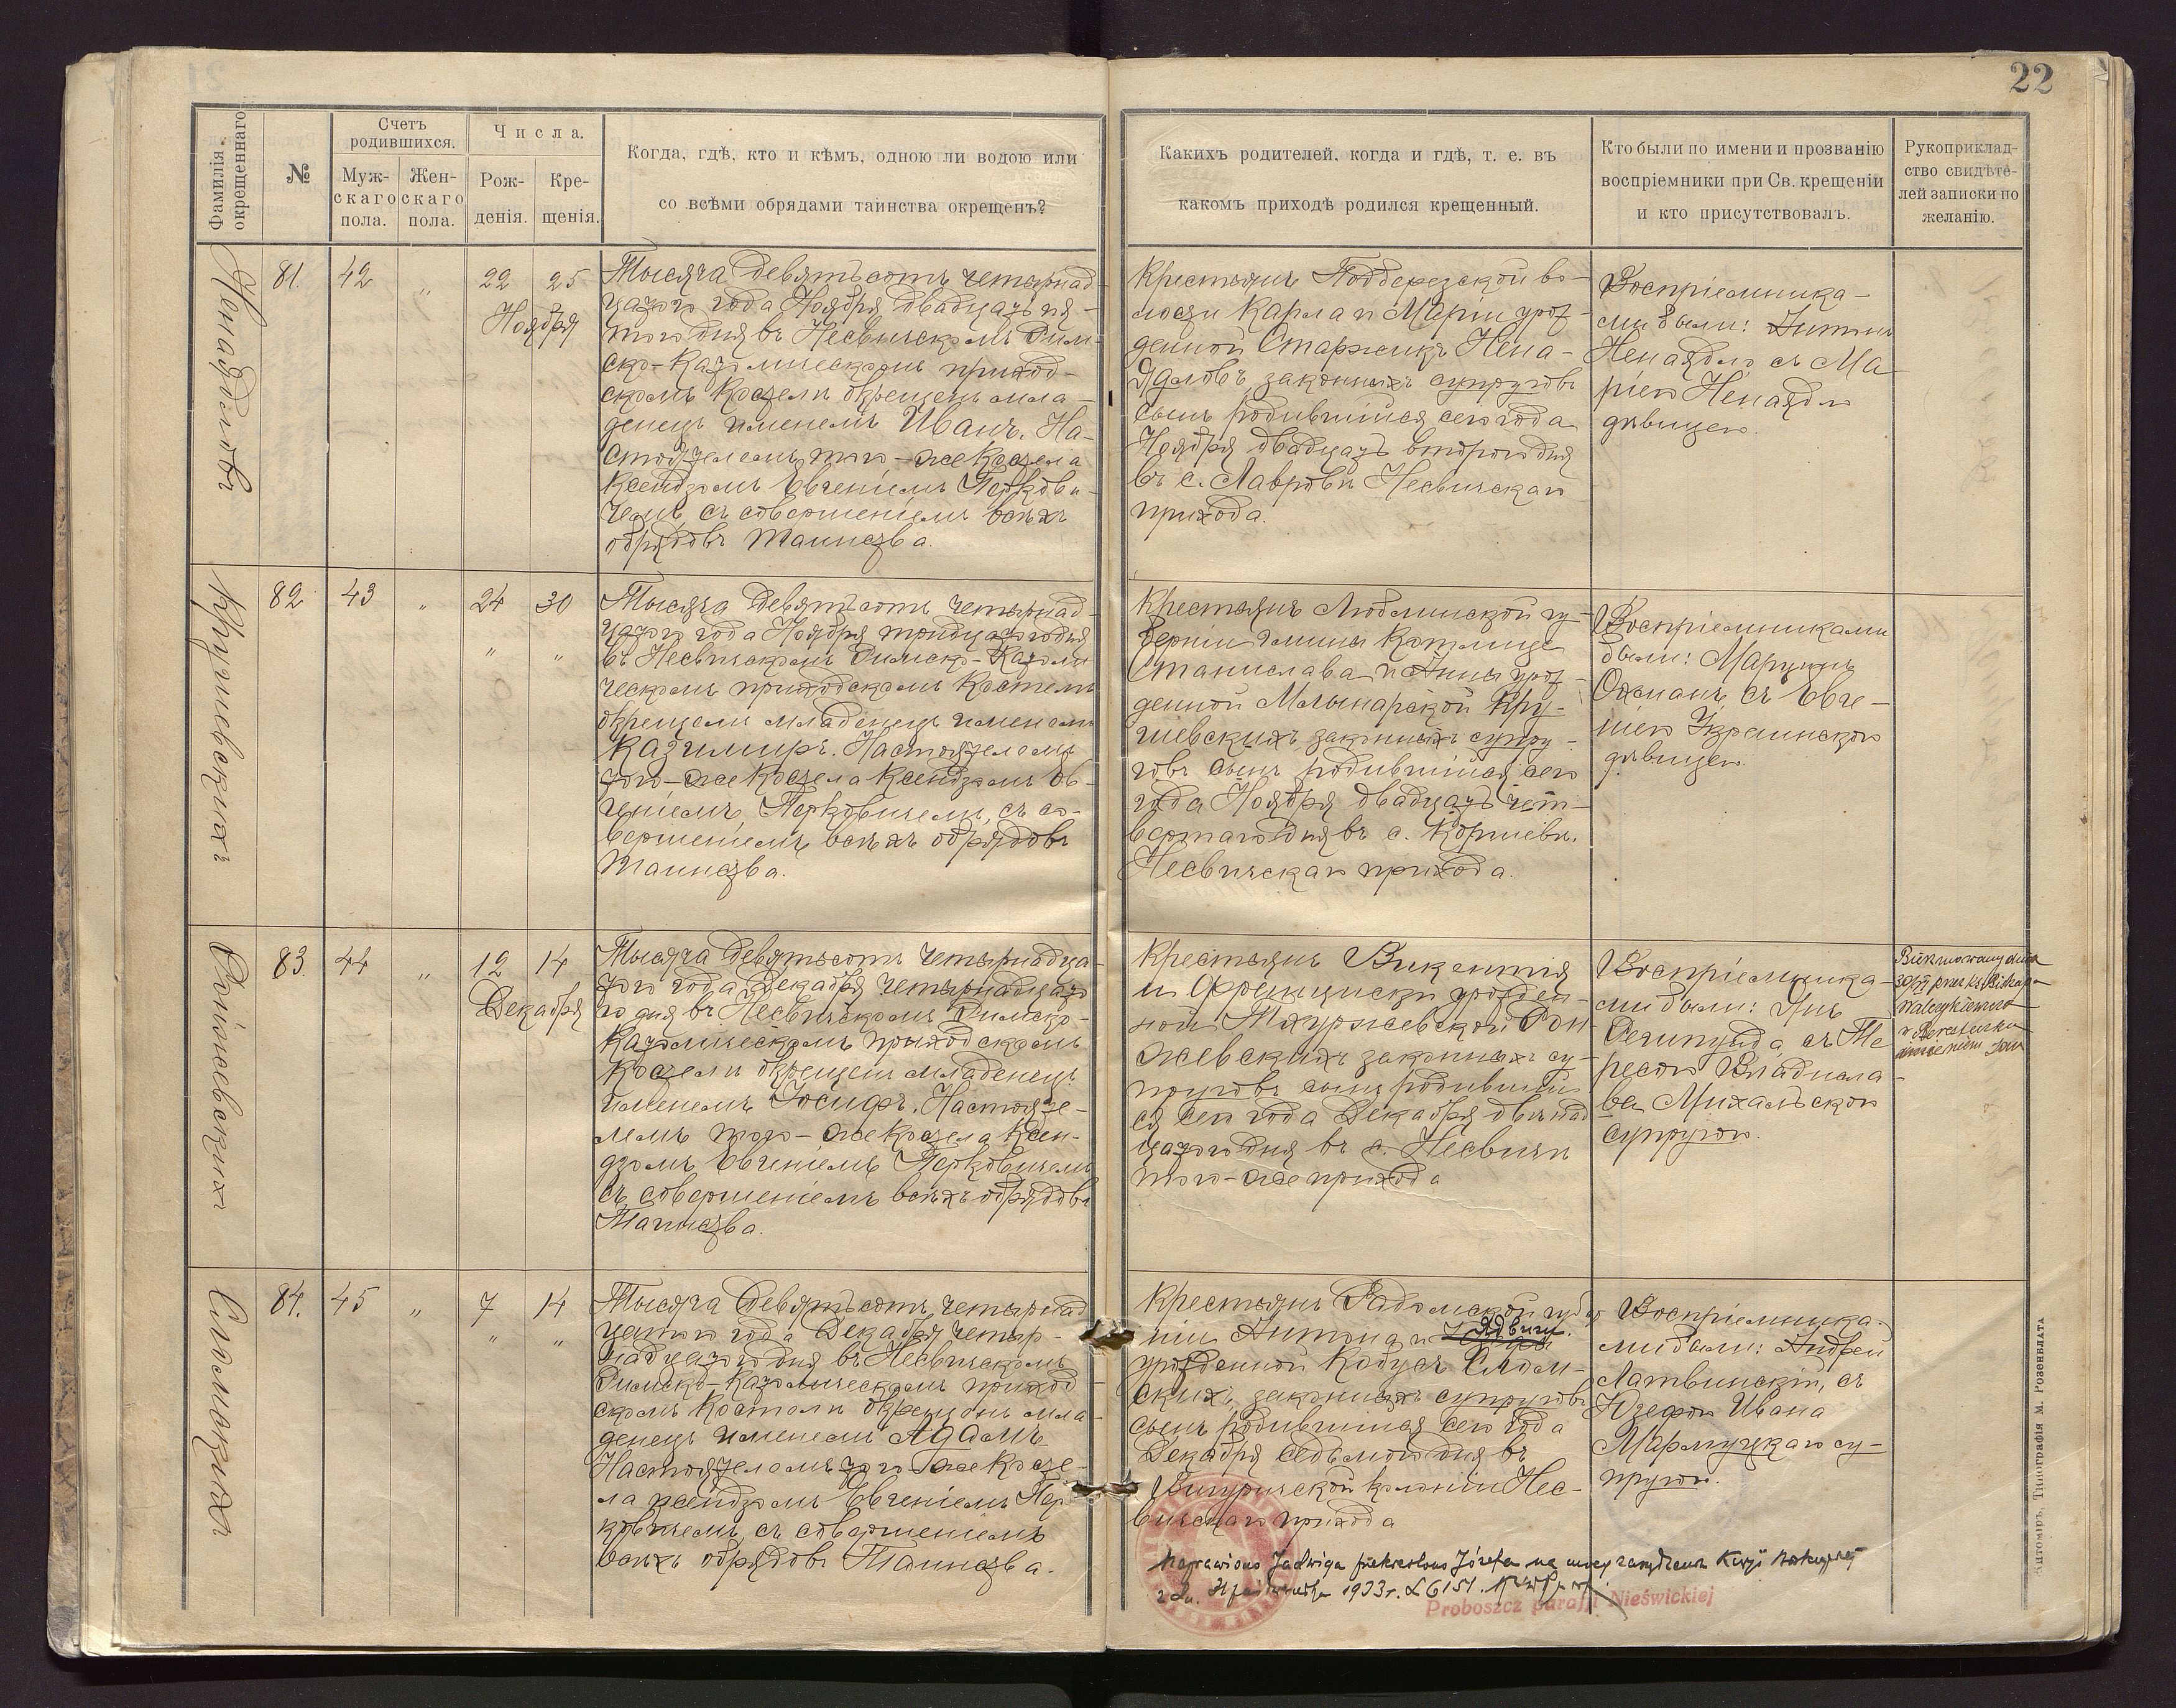 22
Фамилія окрещеннаго.
№
Счетъ родившихся.
Мужскаго пола.
Женскаго пола.
Числа.
Рожденія.
Крещенія.
Когда, гдѣ, кто и кѣмъ, одною ли водою или
со всѣми обрядами таинства окрещенъ?
Какихъ родителей, когда и гдѣ, т. е. въ
какомъ приходѣ родился крещенный.
Кто были по имени и прозванію
воспріемники при Св. крещеніи
и кто присутствовалъ.
Рукоприклад-
ство свидѣте-
лей записки по
желанію.
81. 42 „ 22 25
Ноября
Тысяча девятьсотъ четырнад-
цатого года Ноября двадцать пя-
того дня въ Несвичскомъ Рим-
ско-Католическомъ приход-
скомъ Костелѣ окрещенъ мла-
денецъ именемъ Иванъ. На-
стоятелемъ того-же Костела
Ксендзомъ Евгеніемъ Перкови-
чемъ, съ совершеніемъ всѣхъ
обрядовъ Таинства.
Крестьянъ Поддерезской во-
лости Карла и Маріи урож-
денной Старжикъ Нена-
дловъ, законныхъ супруговъ
сынъ, родившійся сего года
Ноября двадцать второго дня
въ с. Лавровѣ Несвичскаго
прихода.
Воспріемника-
ми были: Антонъ
Ненаядло съ Ма
ріею Ненаядло
дѣвицею.
Крушевскихъ
82 43 „ 24 30
„ „
Тысяча девятьсотъ четырнад-
цатого года Ноября тридцатого дня
въ Несвичскомъ Римско-Католи
ческомъ приходскомъ Костелѣ
окрещенъ младенецъ именемъ
Казимиръ. Настоятелемъ
того-же Костела Ксендзомъ Ев-
геніемъ Перковичемъ, съ со-
вершеніемъ всѣхъ обрядовъ
Таинства.
Крестьянъ Люблинской гу-
берніи гмины Котлице
Станислава и Анны урож-
денной Млынарской Кру-
шевскихъ, законныхъ супру-
говъ сынъ, родившійся сего
года Ноября двадцать чет-
вертаго дня въ с. Коршевѣ,
Несвичскаго прихода.
Воспріемниками
были: Марцинъ
съ Евге-
ніею
дѣвицею.
83. 44 „ 12 14
Декабря
Тысяча девятьсотъ четырнадца-
того года Декабря четырнадцато
го дня въ Несвичскомъ Римско-
Католическомъ приходскомъ
Костелѣ окрещенъ младенецъ
именемъ Іосифъ. Настояте-
лемъ того-же Костела Ксен-
дзомъ Евгеніемъ Перковичемъ
съ совершеніемъ всѣхъ обрядовъ
Таинства.
Крестьянъ Викентія
и Францишки урожден-
ной
законныхъ су-
пруговъ сынъ, родившій
ся сего года Декабря двѣнад
цатого дня въ с. Несвичѣ
того-же прихода
Воспріемника-
ми были: Янъ
съ Те
ресою Владисла-
ва Михальскою
супругою.
84. 45 „ 7 14
„ „
Тысяча девятьсотъ четырнад
цатого года Декабря четыр-
надцатого дня въ Несвичскомъ
Римско-Католическомъ приход-
скомъ Костелѣ окрещенъ мла-
денецъ именемъ Адамъ
Настоятелемъ того же Косте-
ла ксендзомъ Евгеніемъ Пер
ковичемъ, съ совершеніемъ
всѣхъ обрядовъ Таинства.
Крестьянъ Радомской губер
ніи Антона и Ядвиги
урожденной Кобусъ
законныхъ супруговъ
сынъ, родившійся сего года
Декабря седьмого дня въ
колоніи Нес-
вичскаго прихода
Воспріемника-
ми были: Андрей
Латвинскій, съ
Юзефою Ивана
су-
пругою.
Jadwiga przekreślono Józefa na mocy zarządzenia Kurji Biskupiej
1933 r. L 6151.
Proboszcz parafji Nieświckiej
Житоміръ, Типографія М. Розенблата